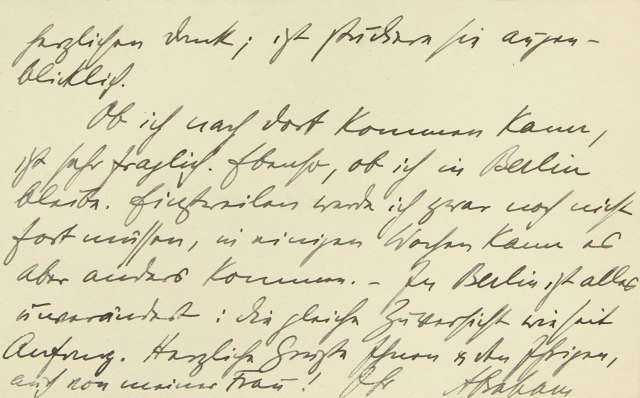 herzlichen Dank; ich studiere sie augen-
blicklich.
Ob ich nach dort kommen kann,
ist sehr fraglich. Ebenso, ob ich in Berlin
bleibe. Einstweilen werde ich zwar noch nicht
fort müssen, in einigen Wochen kann es
aber anders kommen. – In Berlin ist alles
unverändert: die gleiche Zuversicht wie seit
Anfang. Herzliche Grüße Ihnen u. den Ihrigen,
auch von meiner Frau! Ihr Abraham